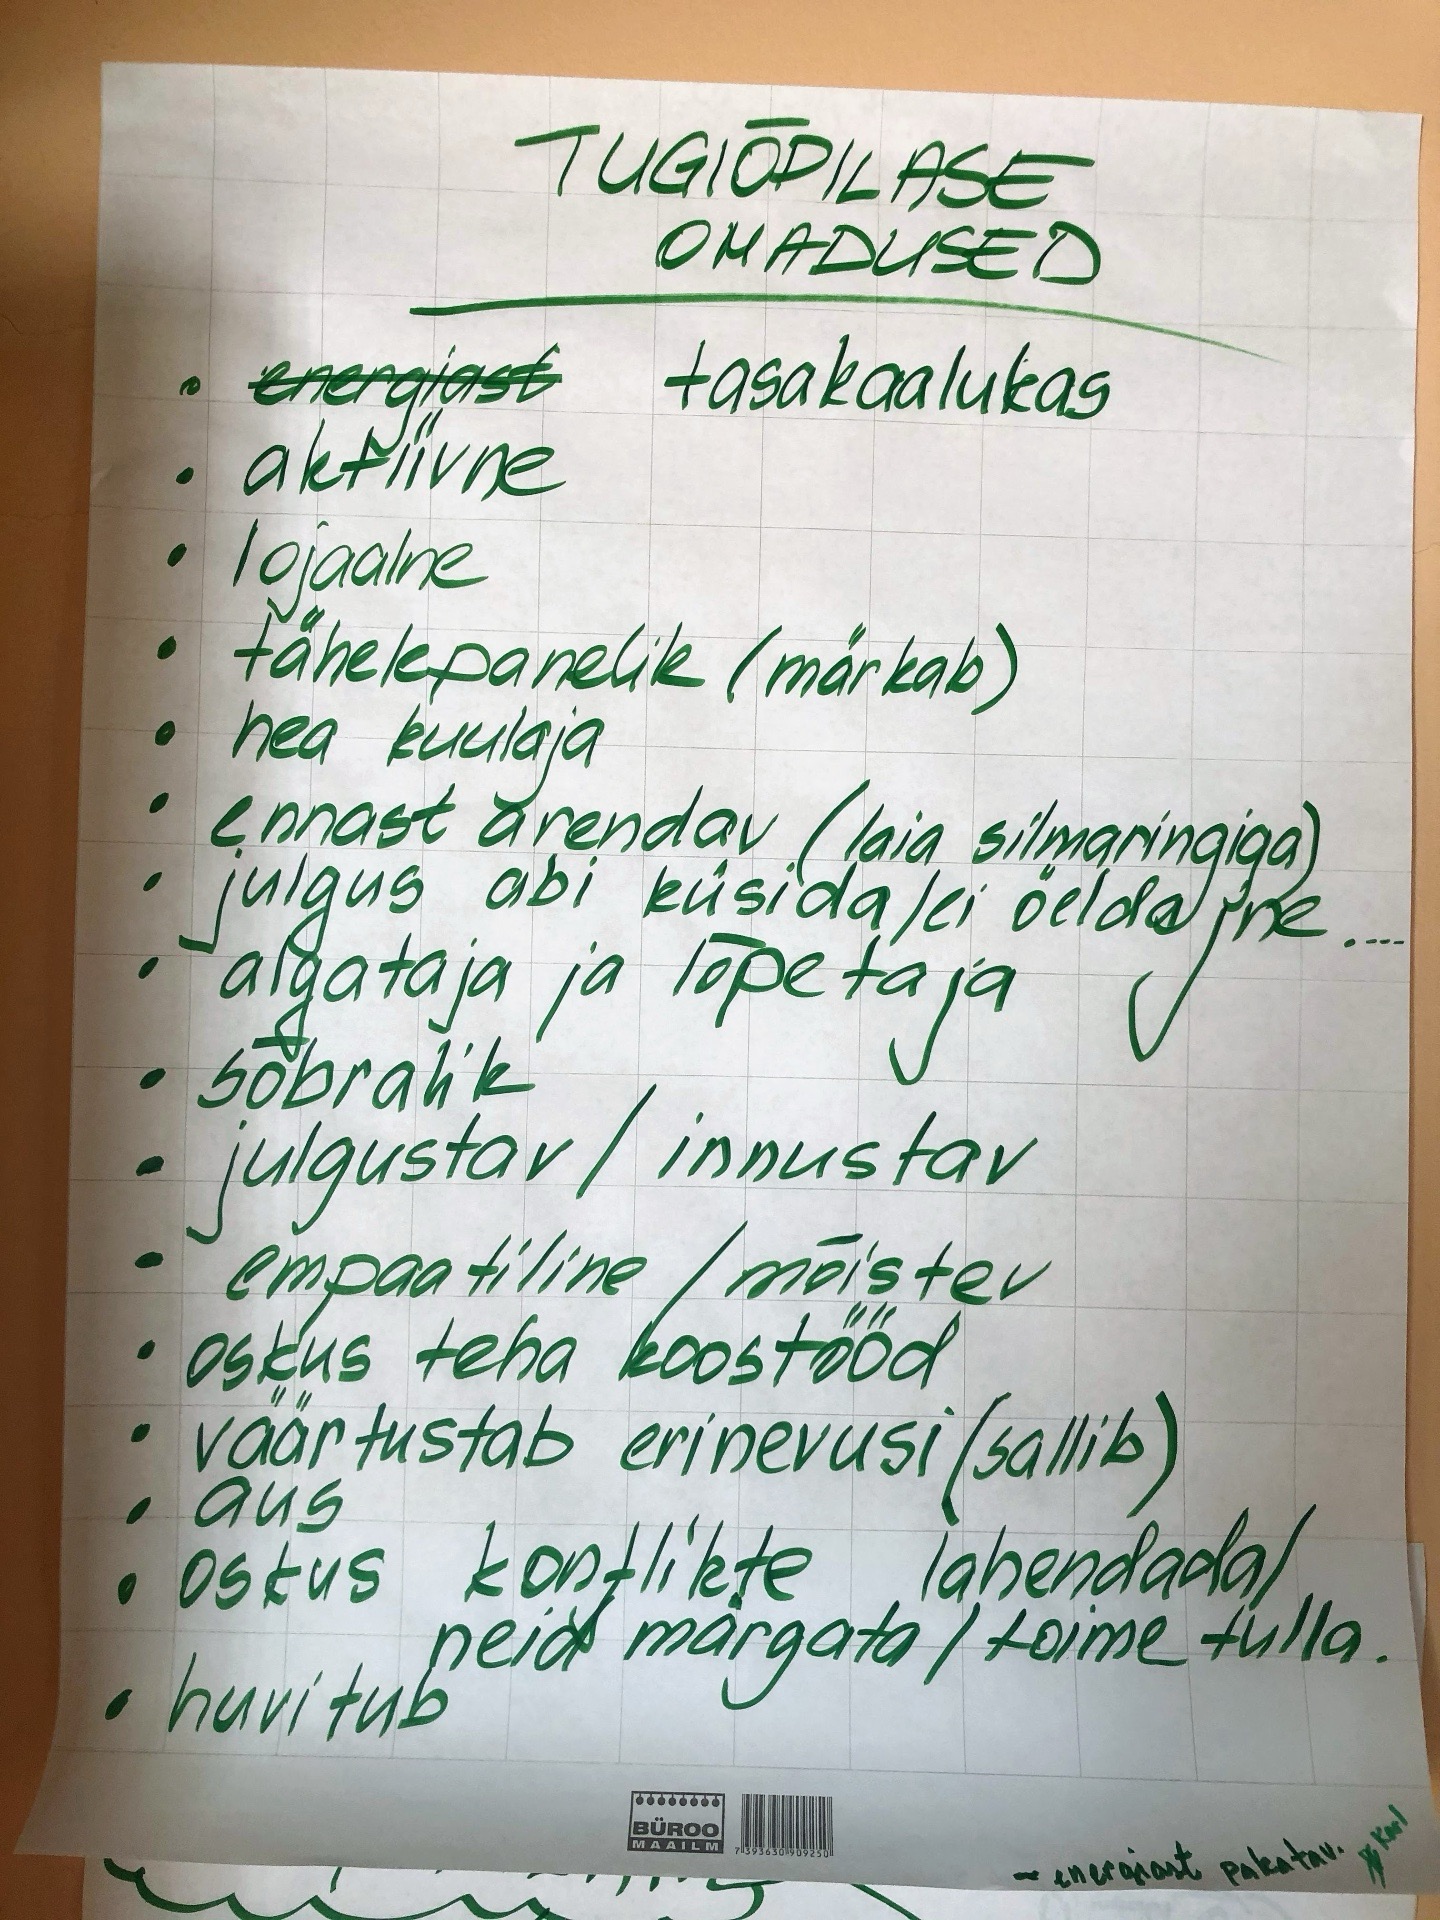 TUGIÕPILASE
OMADUSED
• energiast tasakaalukas
• aktiivne
• lojaalne
• tähelepanelik (märkab)
• hea kuulaja
• ennast arendav (laia silmaringiga)
• julgus abi küsida/ei öelda jne....
• algataja ja lõpetaja
• sõbralik
• julgustav / innustav
• empaatiline / mõistev
• oskus teha koostööd
• väärtustab erinevusi (sallib)
• aus
• oskus konflikte lahendada/
neid märgata / toime tulla.
• huvitub
BÜROO
MAAILM
7393630909250
- energiast pakatav. Karl